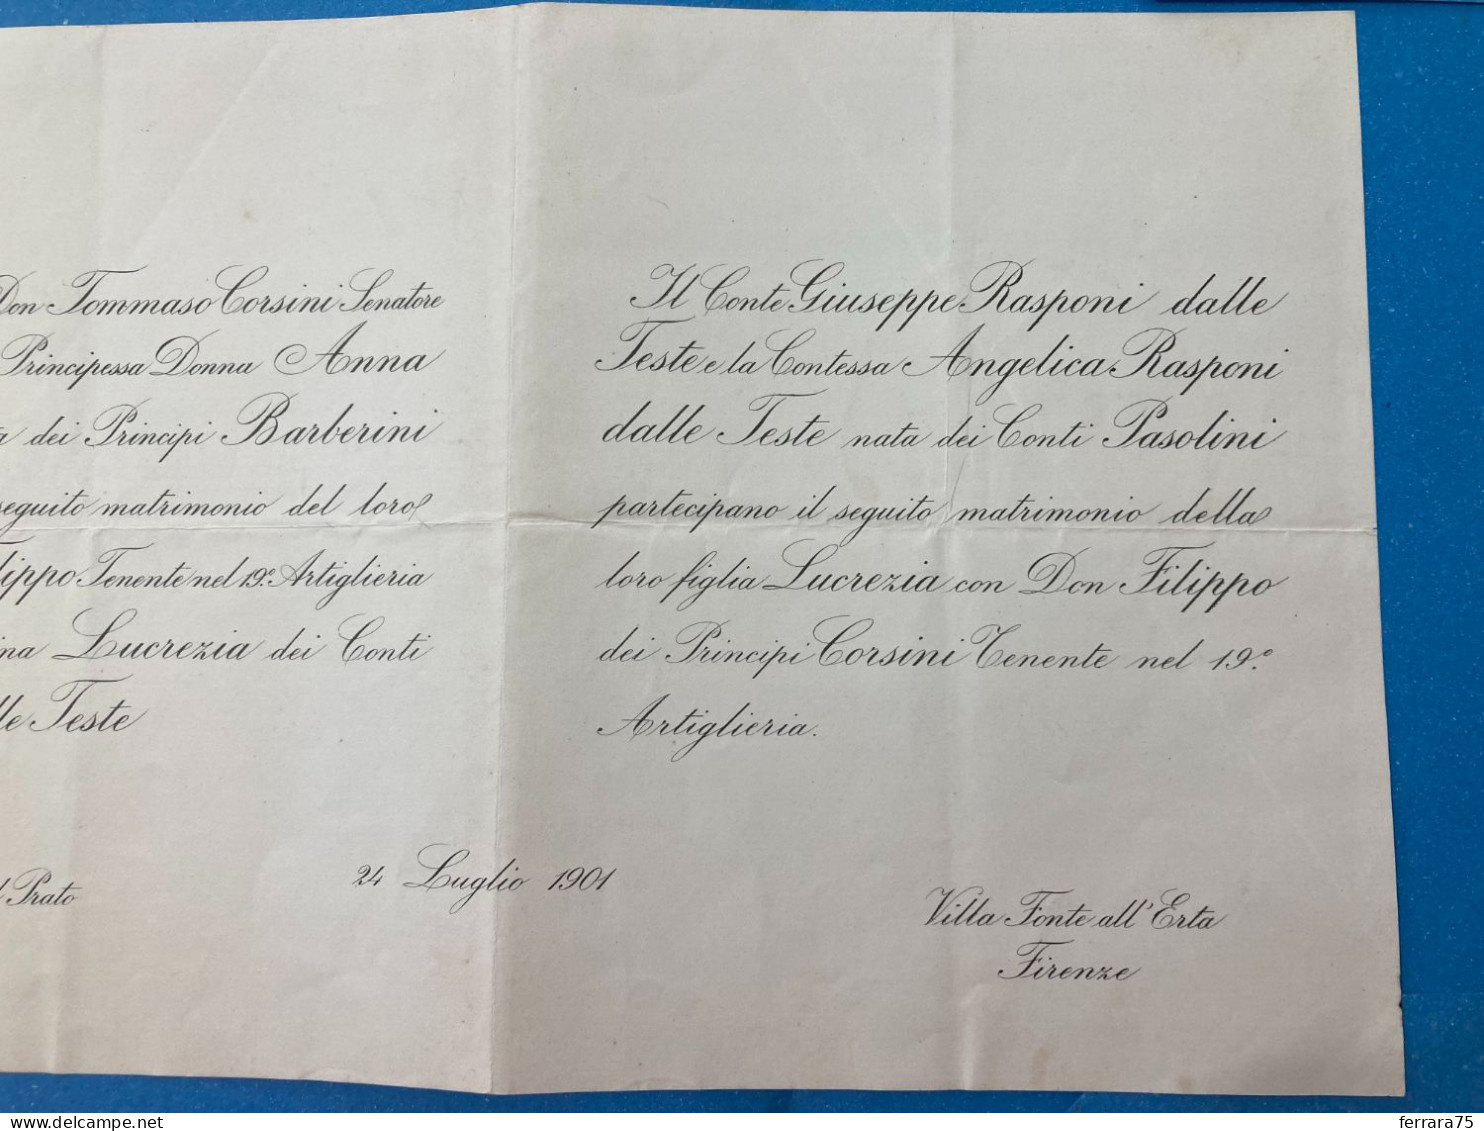 Don Tommaso Corsini Senatore
Principessa Donna Anna
dei Principi Barberini
seguito matrimonio del loro
Tenente nel 19º. Artiglieria
Lucrezia dei Conti
Teste
Prato
24 Luglio 1901
Il Conte Giuseppe Rasponi dalle
Teste e la Contessa Angelica Rasponi
dalle Teste nata dei Conti Pasolini
partecipano il seguito matrimonio della
loro figlia Lucrezia con Don Filippo
dei Principi Corsini Tenente nel 19.º
Artiglieria.
Villa Fonte all'Erta
Firenze
delcampe.net
ferrara75